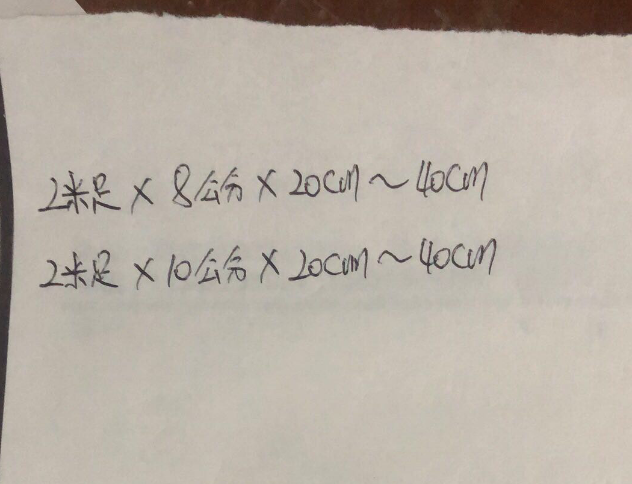 2米足 × 8公分 × 20cm～40cm
2米足 × 10公分 × 20cm～40cm